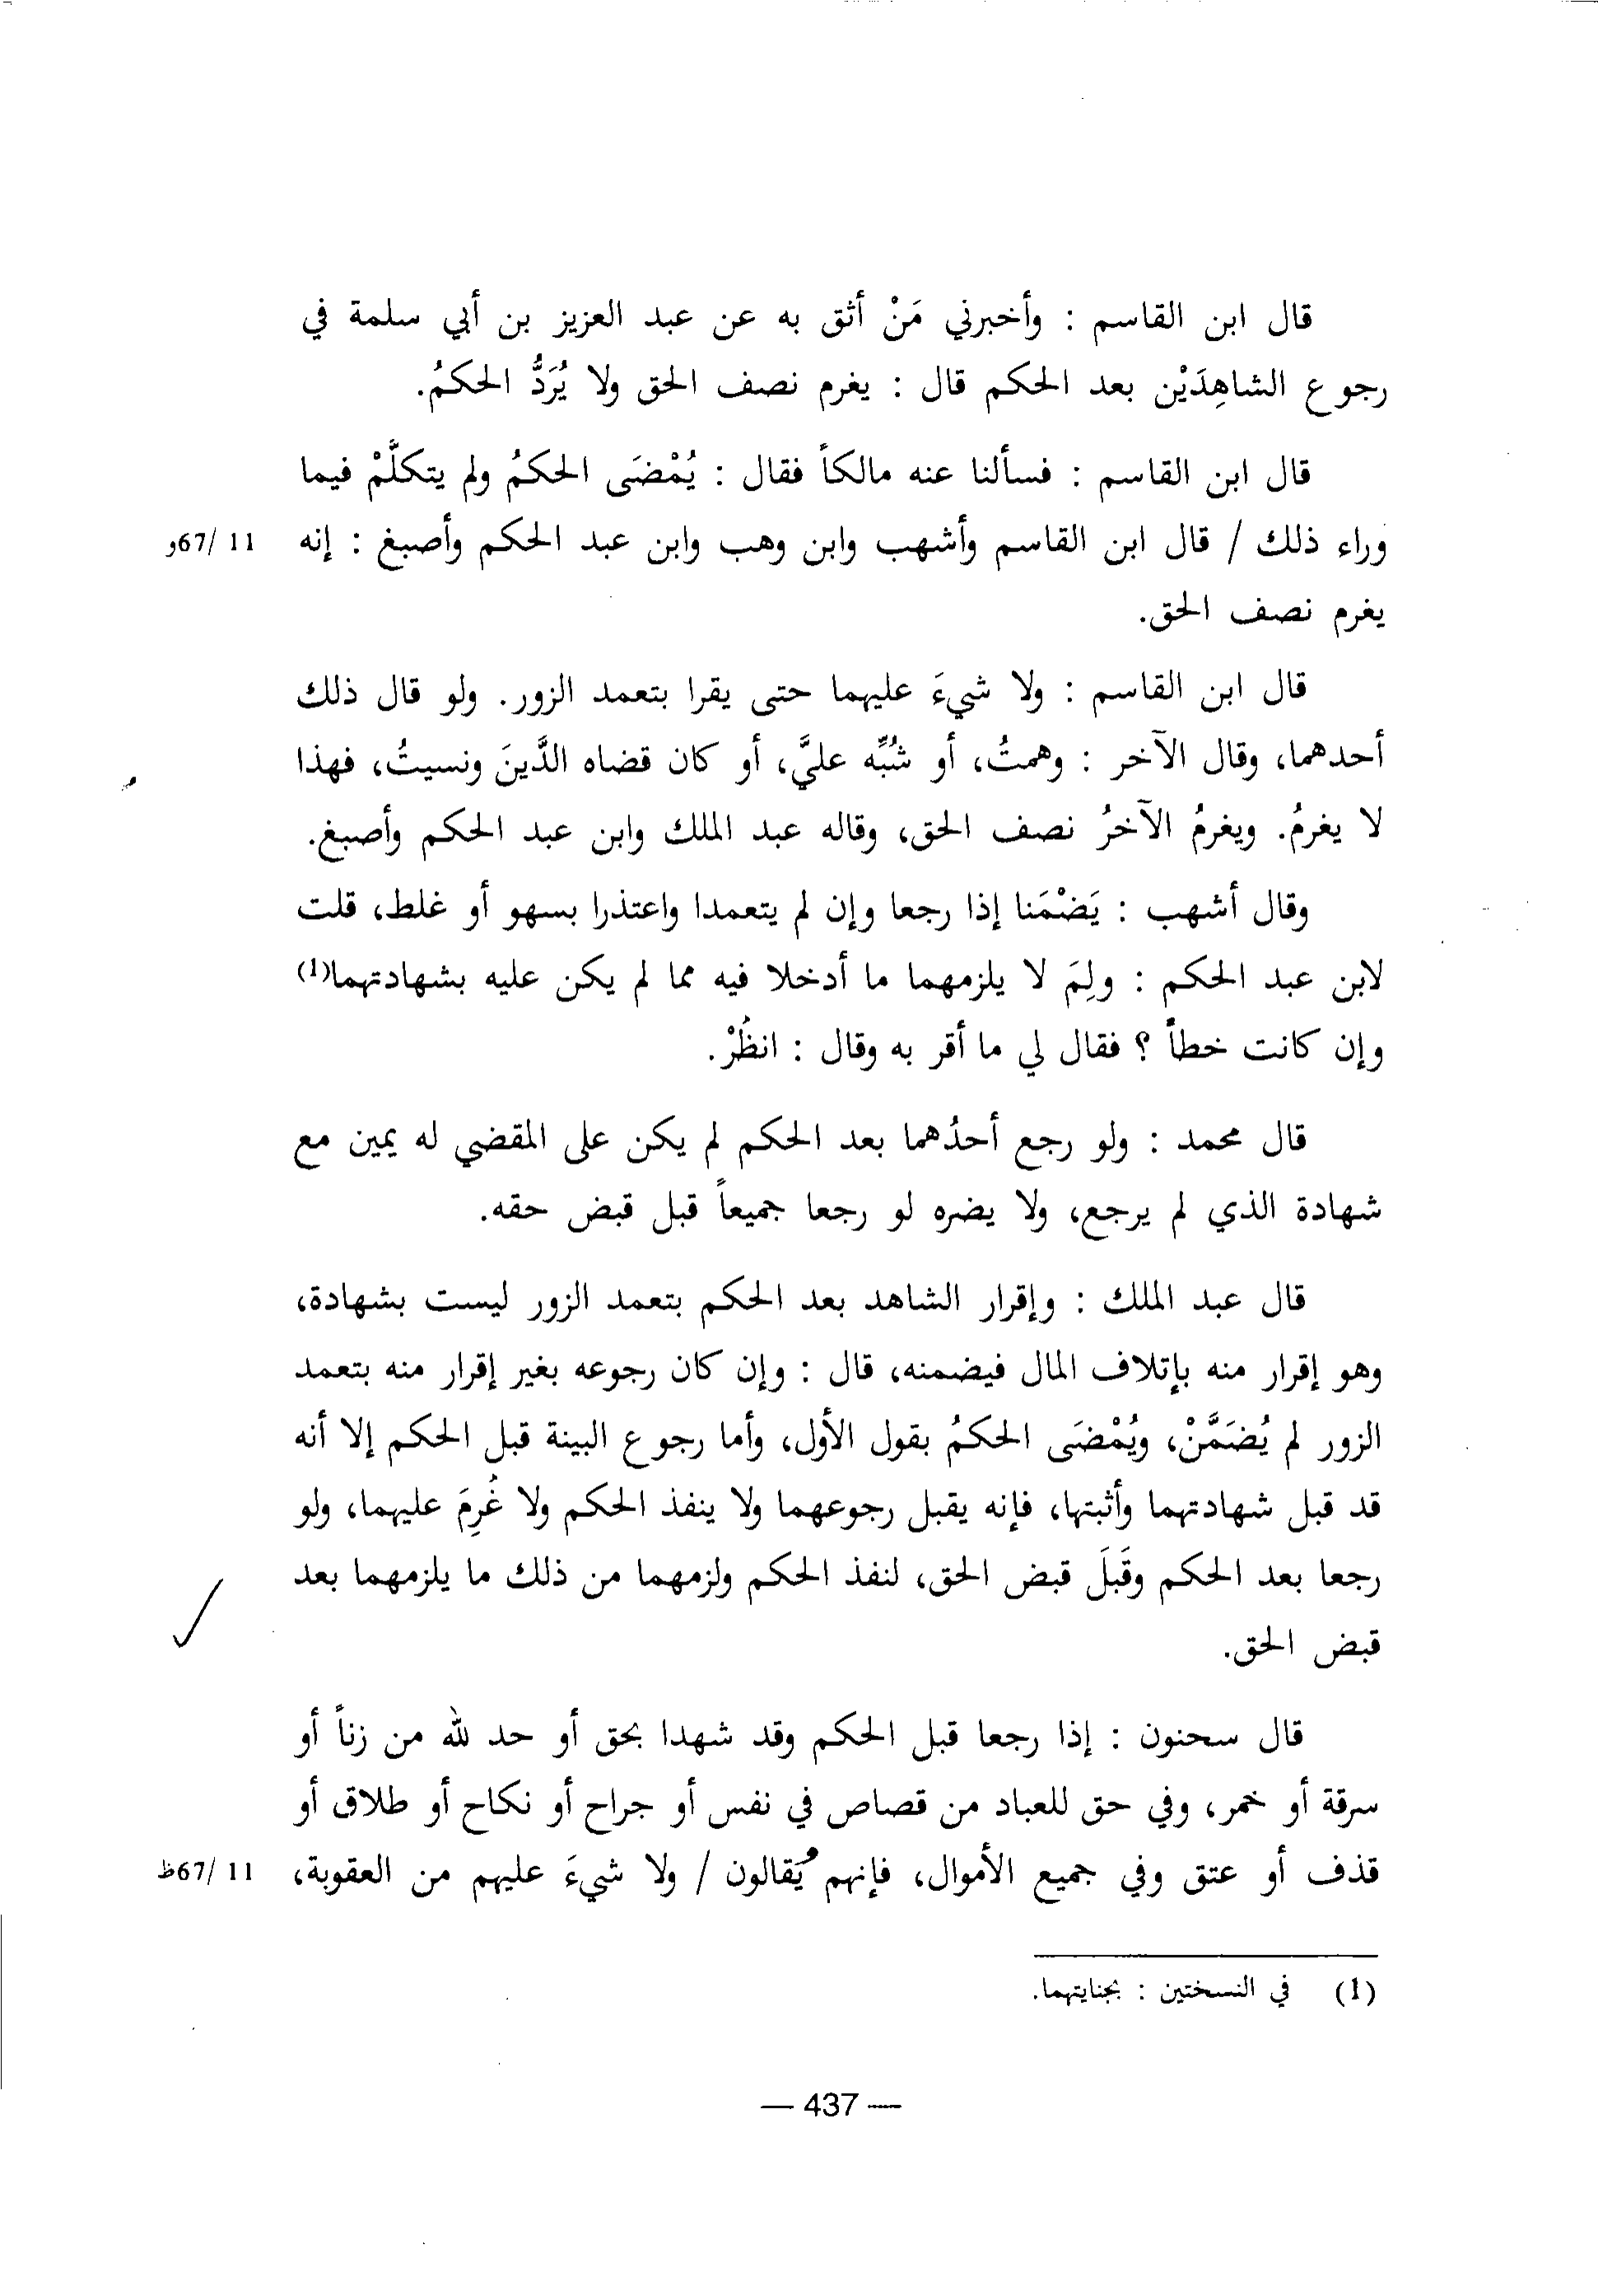 قال ابن القاسم : وأخبرني مَنْ أثق به عن عبد العزيز بن أبي سلمة في
رجوع الشاهِدَيْن بعد الحكم قال : يغرم نصف الحق ولا يُرَدُّ الحكمُ.
قال ابن القاسم : فسألنا عنه مالكاً فقال : يُمْضَى الحكمُ ولم يتكلَّمْ فيما
وراء ذلك / قال ابن القاسم وأشهب وابن وهب وابن عبد الحكم وأصبغ : إنه 11 /67و
يغرم نصف الحق.
قال ابن القاسم : ولا شيءَ عليهما حتى يقرا بتعمد الزور. ولو قال ذلك
أحدهما، وقال الآخر : وهمتُ، أو شُبِّه عليَّ، أو كان قضاه الدَّينَ ونسيتُ، فهذا
لا يغرمُ. ويغرمُ الآخرُ نصف الحق، وقاله عبد الملك وابن عبد الحكم وأصبغ.
وقال أشهب : يَضْمَنا إذا رجعا وإن لم يتعمدا واعتذرا بسهو أو غلط، قلت
لابن عبد الحكم : ولِمَ لا يلزمهما ما أدخلا فيه مما لم يكن عليه بشهادتهما(1)
وإن كانت خطأً ؟ فقال لي ما أقر به وقال : انظُرْ.
قال محمد : ولو رجع أحدُهما بعد الحكم لم يكن على المقضي له يمين مع
شهادة الذي لم يرجع، ولا يضره لو رجعا جميعاً قبل قبض حقه.
قال عبد الملك : وإقرار الشاهد بعد الحكم بتعمد الزور ليست بشهادة،
وهو إقرار منه بإتلاف المال فيضمنه، قال : وإن كان رجوعه بغير إقرار منه بتعمد
الزور لم يُضَمَّنْ، ويُمْضَى الحكمُ بقول الأول، وأما رجوع البينة قبل الحكم إلا أنه
قد قبل شهادتهما وأثبتها، فإنه يقبل رجوعهما ولا ينفذ الحكم ولا غُرِمَ عليهما، ولو
رجعا بعد الحكم وقَبَلَ قبض الحق، لنفذ الحكم ولزمهما من ذلك ما يلزمهما بعد
قبض الحق.
قال سحنون : إذا رجعا قبل الحكم وقد شهدا بحق أو حد لله من زناً أو
سرقة أو خمر، وفي حق للعباد من قصاص في نفس أو جراح أو نكاح أو طلاق أو
قذف أو عتق وفي جميع الأموال، فإنهم يُقالون / ولا شيءَ عليهم من العقوبة، 11 /67ظ
(1) في النسختين : بجنايتهما.
— 437 —